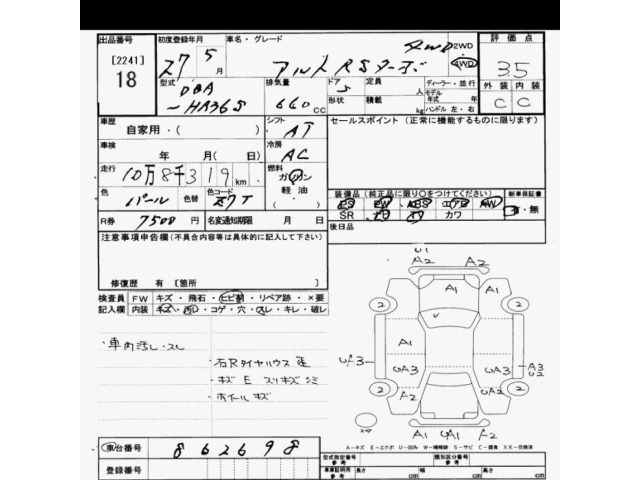 出品番号
[2241]
18
初度登録年月
27年5月
車名・グレード
アルトRSターボ
4WD
2WD
4WD
評価点
3.5
外装 内装
C C
型式
DBA
-HA36S
排気量
660 CC
ドア
5
形状
定員
人
積載
kg
ディーラー・並行
モデル年式 年
ハンドル 左・右
車歴
自家用・( )
シフト
AT
セールスポイント (正常に機能するものに限ります)
車検
年 月(日)
冷房
AC
走行
10万8千319km
燃料
ガソリン
軽油
色
パール
色替
色コード
Z7T
装備品(純正品に限り○をつけてください)
PS PW ABS エアB AW
SR ナビ TV カワ
新車保証書
有・無
R券
7500円
名変通知期限 月 日
後日品
注意事項申告欄(不具合内容等は具体的に記入して下さい)
修復歴 有[箇所 ]
検査員記入欄
FW キズ・飛石・ヒビ割・リペア跡・×要
内装 キズ・汚レ・コゲ・穴・スレ・キレ・破レ
・車内汚レ・スレ
・右Rタイヤハウス歪
・キズ E スリキズ シミ
・ホイールキズ
U1
A2 A2
A1 A1
2 2
V
A1
UA3 UA3 UA3 A3
U2
2 2
A2 A2
スペア
A1 UA1 A2
A-キズ E-エクボ U-凹み W-補修跡 S-サビ C-腐食 XX-交換済
車台番号
862698
登録番号
型式指定番号
参考
類別区分番号
参考
車車証明用
参考
長さ cm
幅 cm
高さ cm